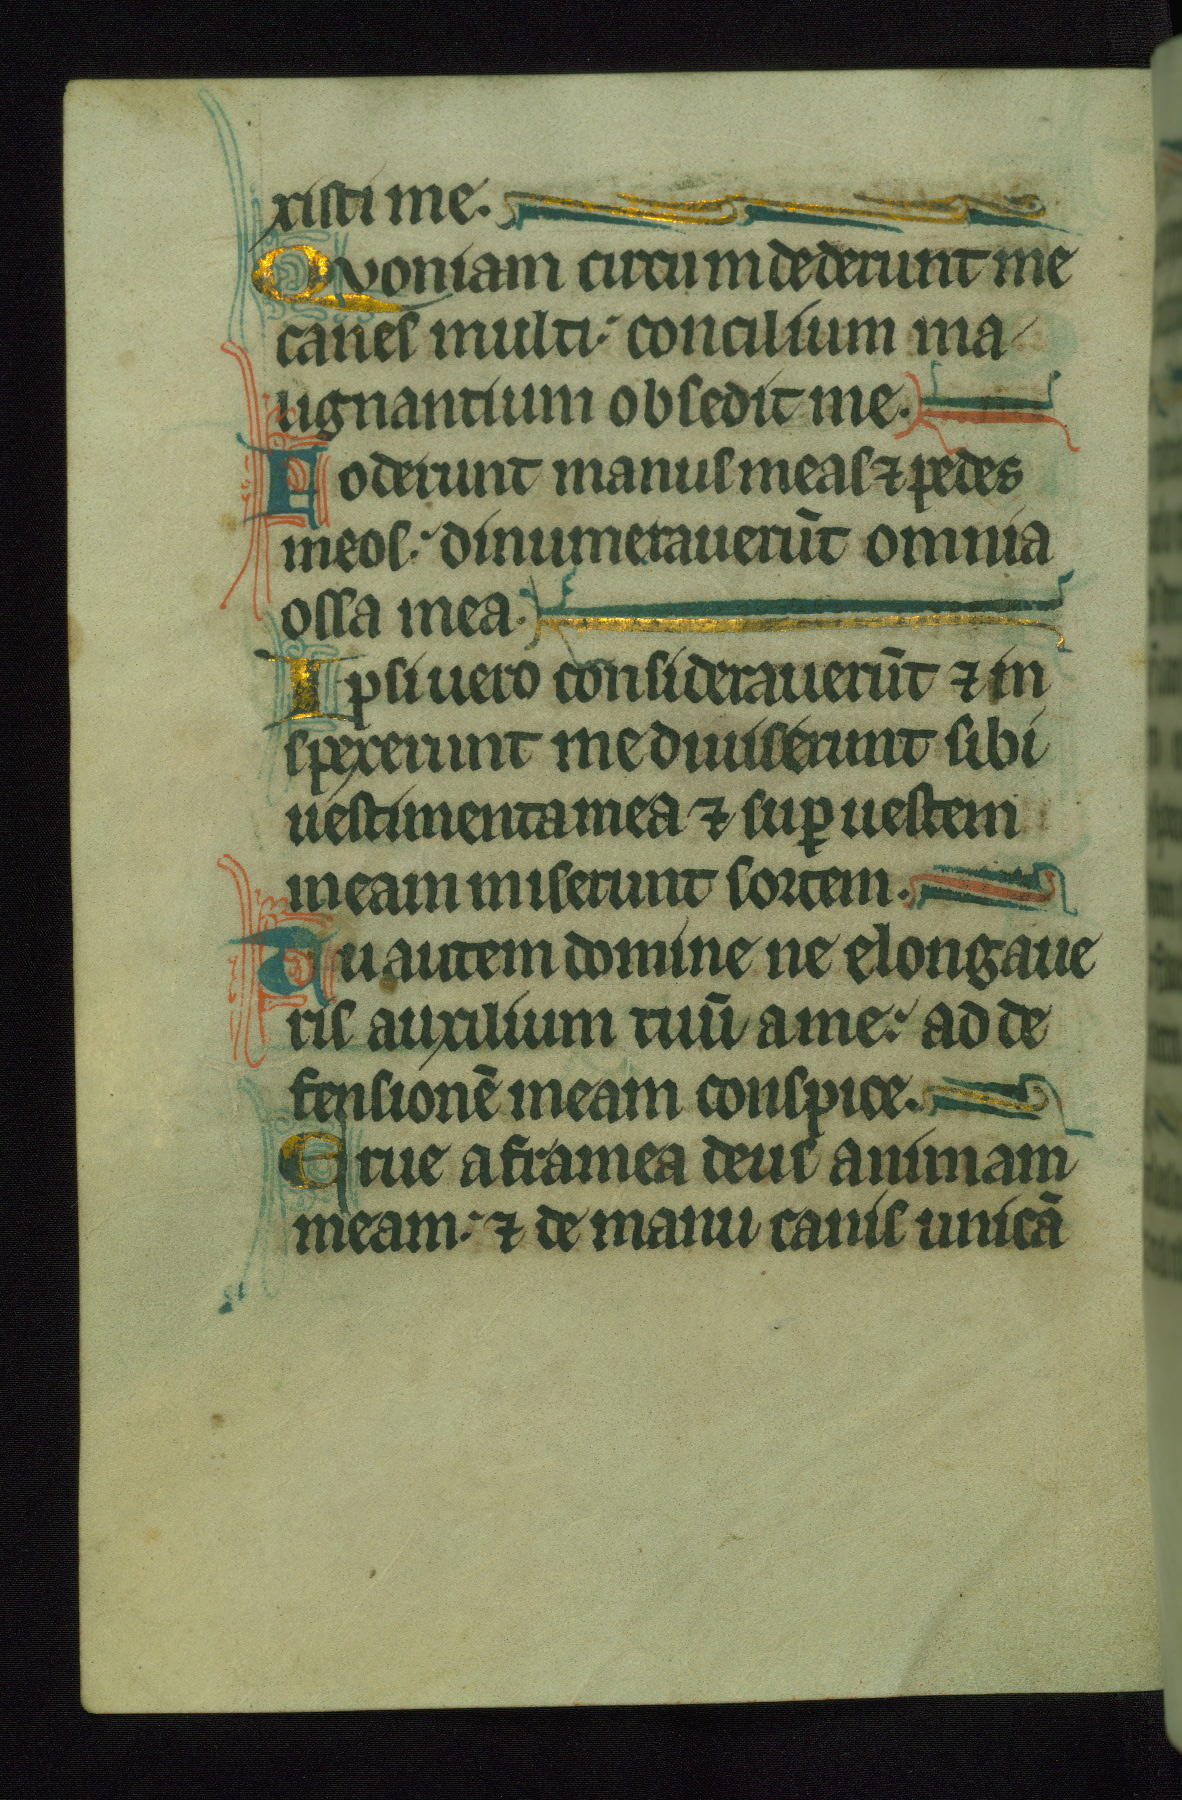 xisti me.
Quoniam circumdederunt me
canes multi: concilium ma
lignantium obsedit me.
Foderunt manus meas ⁊ pedes
meos: dinumerauerūt omnia
ossa mea.
Ipsi uero considerauerūt ⁊ in
spexerunt me diuiserunt sibi
uestimenta mea ⁊ suꝑ uestem
meam miserunt sortem.
Tu autem domine ne elongaue
ris auxilium tuū a me: ad de
fensionē meam conspice.
Erue a framea deus animam
meam: ⁊ de manu canis unicā